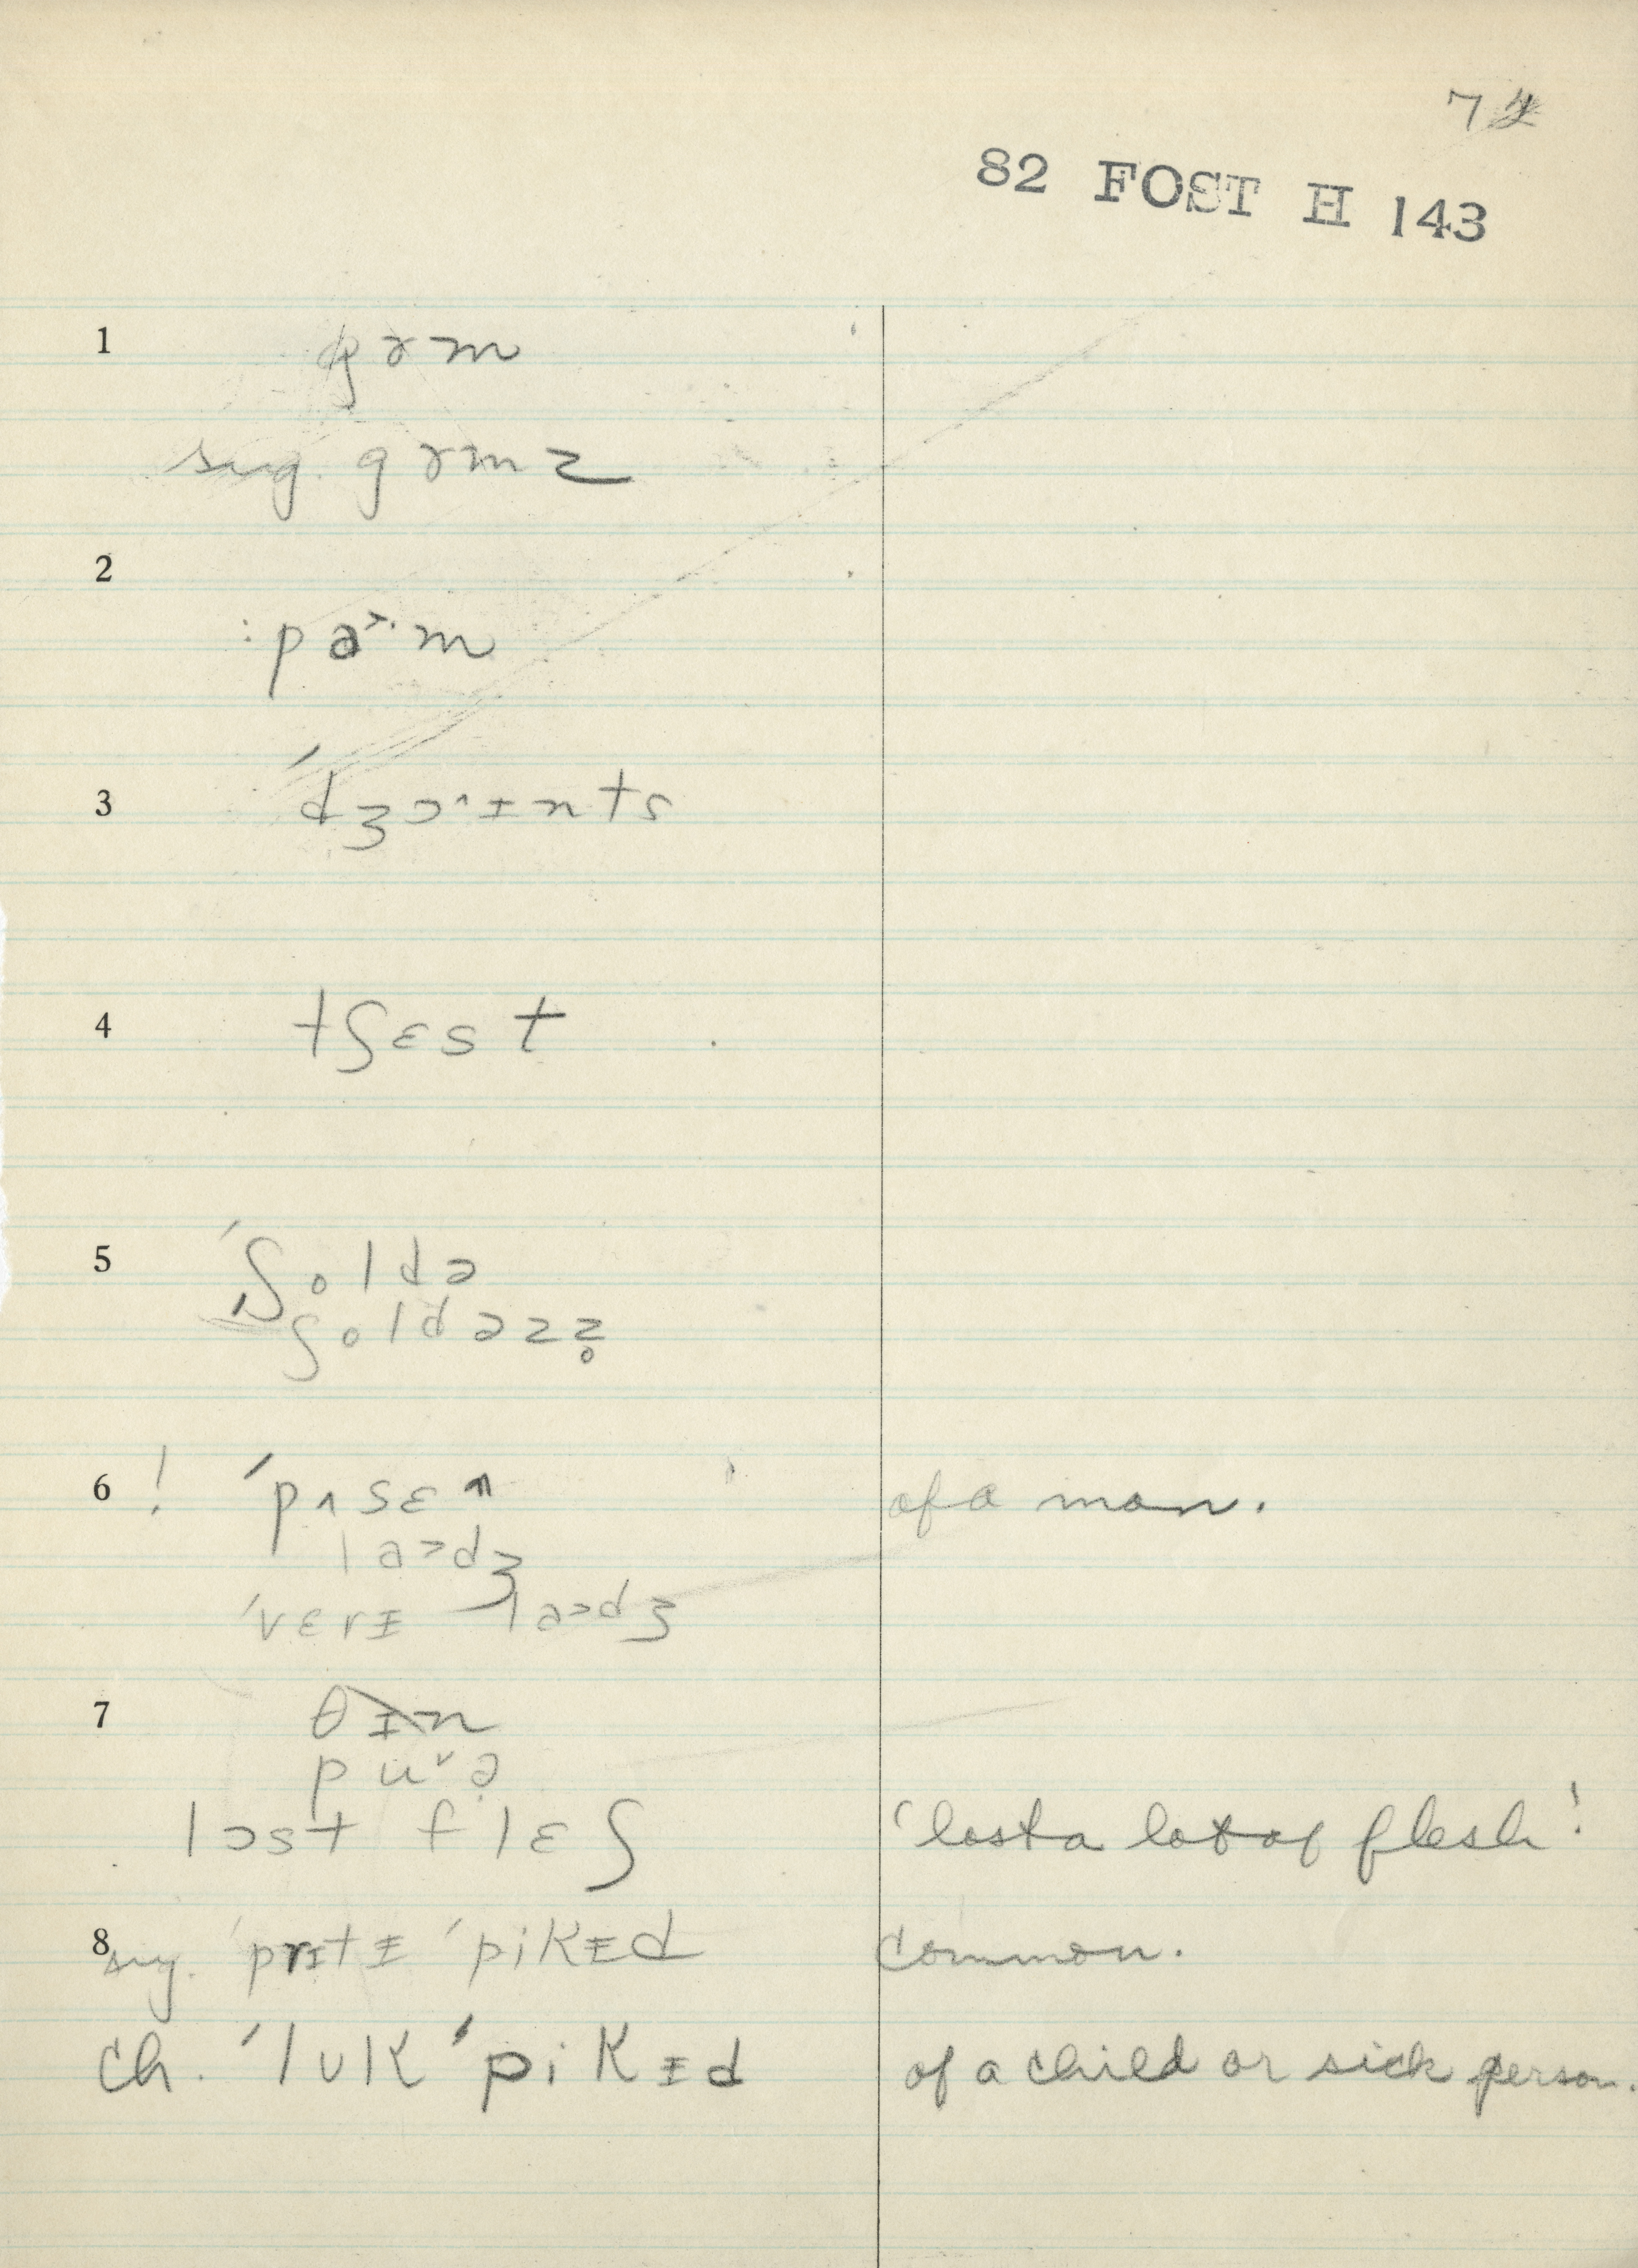 72
82 FOST H 143
1 gɤm
sug. gɤmz
2
:pa˃·m
3 ˈdʒɔ^ɪnts
4 tʃɛst
5 ˈʃoldə
ʃoldəzz̥
6 ! ˈpɜsɛn of a man.
la˃dʒ
ˈvɛrɪ la˃dʒ
7 θɪn
puˇə̣
lɔst flɛʃ 'lost a lot of flesh!
8 sug. ˈprɪtɪ ˈpikɪd common.
ch. ˈlʊk ˈpikɪd of a child or sick person.